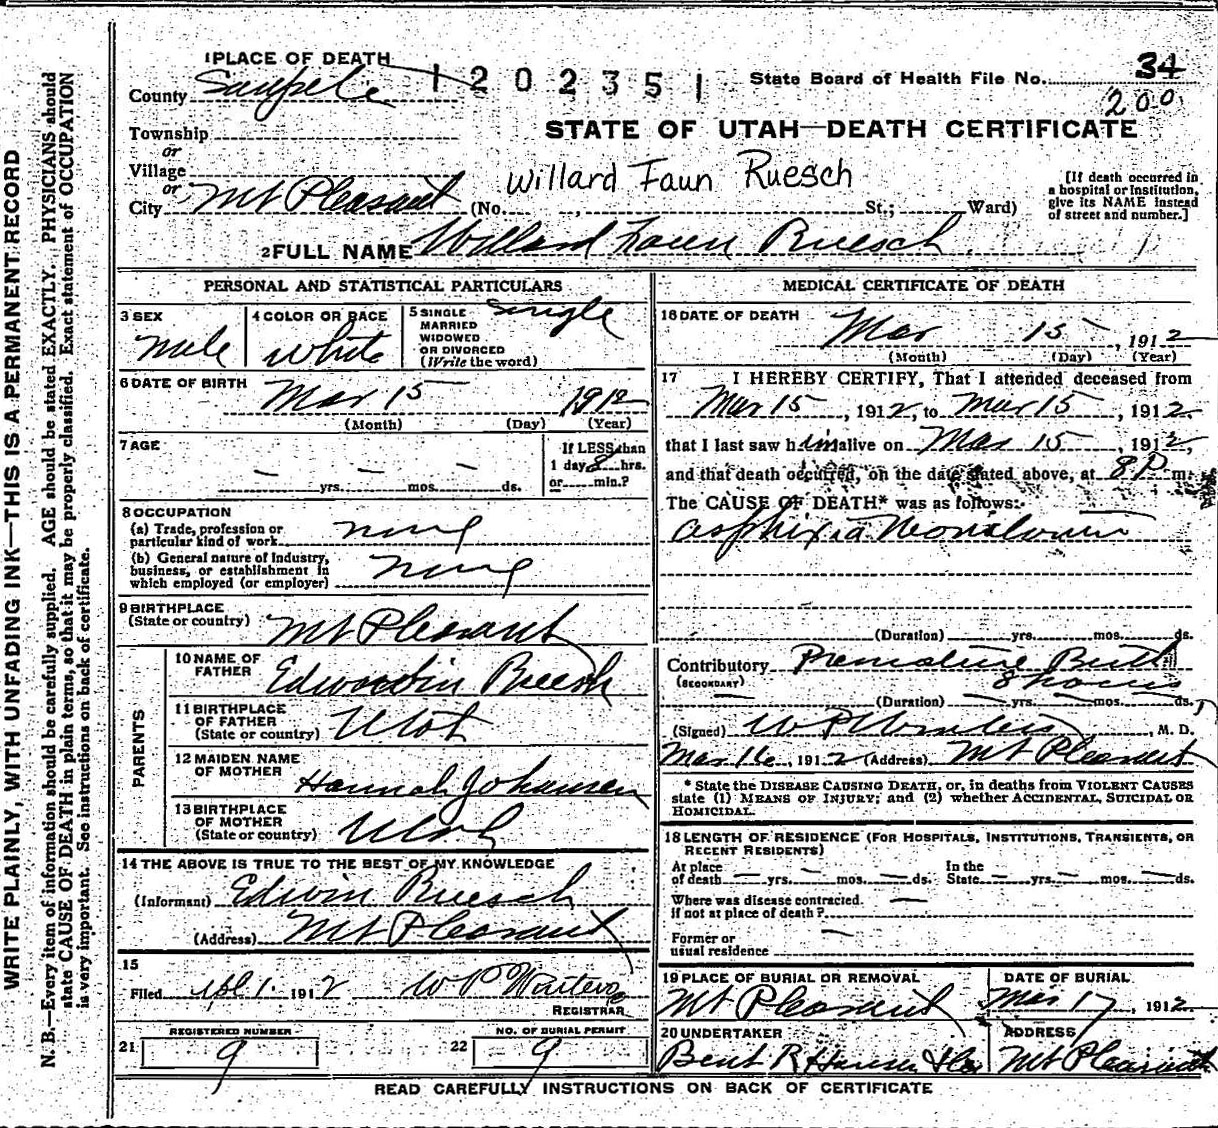 1 PLACE OF DEATH
1202351
State Board of Health File No. 34
200
County Sanpete
STATE OF UTAH—DEATH CERTIFICATE
Township
or
Village
or
City Mt Pleasant
Willard Faun Ruesch
(No. , St.; Ward)
[If death occurred in
a hospital or institution,
give its NAME instead
of street and number.]
2 FULL NAME Willard Faun Ruesch
PERSONAL AND STATISTICAL PARTICULARS
3 SEX
Male
4 COLOR OR RACE
White
5 SINGLE
MARRIED
WIDOWED
OR DIVORCED
(Write the word)
Single
6 DATE OF BIRTH
Mar 15 1912
(Month) (Day) (Year)
7 AGE
— — — yrs. mos. ds.
If LESS than
1 day 8 hrs.
or min.?
8 OCCUPATION
(a) Trade, profession or
particular kind of work none
(b) General nature of Industry,
business, or establishment in
which employed (or employer) none
9 BIRTHPLACE
(State or country) Mt Pleasant
PARENTS
10 NAME OF
FATHER Ruesch
11 BIRTHPLACE
OF FATHER
(State or country) Utah
12 MAIDEN NAME
OF MOTHER Hannah Johansen
13 BIRTHPLACE
OF MOTHER
(State or country) Utah
14 THE ABOVE IS TRUE TO THE BEST OF MY KNOWLEDGE
(Informant) Edwin Ruesch
(Address) Mt Pleasant
15
Filed Apl 1. 1912 W P Winters
REGISTRAR
REGISTERED NUMBER
21 9
NO. OF BURIAL PERMIT
22 9
MEDICAL CERTIFICATE OF DEATH
16 DATE OF DEATH
Mar 15, 1912
(Month) (Day) (Year)
17 I HEREBY CERTIFY, That I attended deceased from
Mar 15, 1912, to Mar 15, 1912
that I last saw him alive on Mar 15 1912,
and that death occurred, on the date stated above, at 8 P m.
The CAUSE OF DEATH* was as follows:
Asphixia Neonatorum
(Duration) yrs. mos. ds.
Contributory Premature Birth
(SECONDARY) 8 hours
(Duration) yrs. mos. ds.
(Signed) W P Winters, M. D.
Mar 16, 1912 (Address) Mt Pleasant
* State the DISEASE CAUSING DEATH, or, in deaths from VIOLENT CAUSES
state (1) MEANS OF INJURY; and (2) whether ACCIDENTAL, SUICIDAL OR
HOMICIDAL.
18 LENGTH OF RESIDENCE (FOR HOSPITALS, INSTITUTIONS, TRANSIENTS, OR
RECENT RESIDENTS)
At place
of death — yrs. — mos. — ds.
In the
State — yrs. — mos. — ds.
Where was disease contracted.
If not at place of death? —
Former or
usual residence —
19 PLACE OF BURIAL OR REMOVAL
Mt Pleasant
DATE OF BURIAL
Mar 17, 1912
20 UNDERTAKER
Bent R Hansen
ADDRESS
Mt Pleasant
READ CAREFULLY INSTRUCTIONS ON BACK OF CERTIFICATE
WRITE PLAINLY, WITH UNFADING INK—THIS IS A PERMANENT RECORD
N. B.—Every item of information should be carefully supplied. AGE should be stated EXACTLY. PHYSICIANS should
state CAUSE OF DEATH in plain terms, so that it may be properly classified. Exact statement of OCCUPATION
is very important. See instructions on back of certificate.